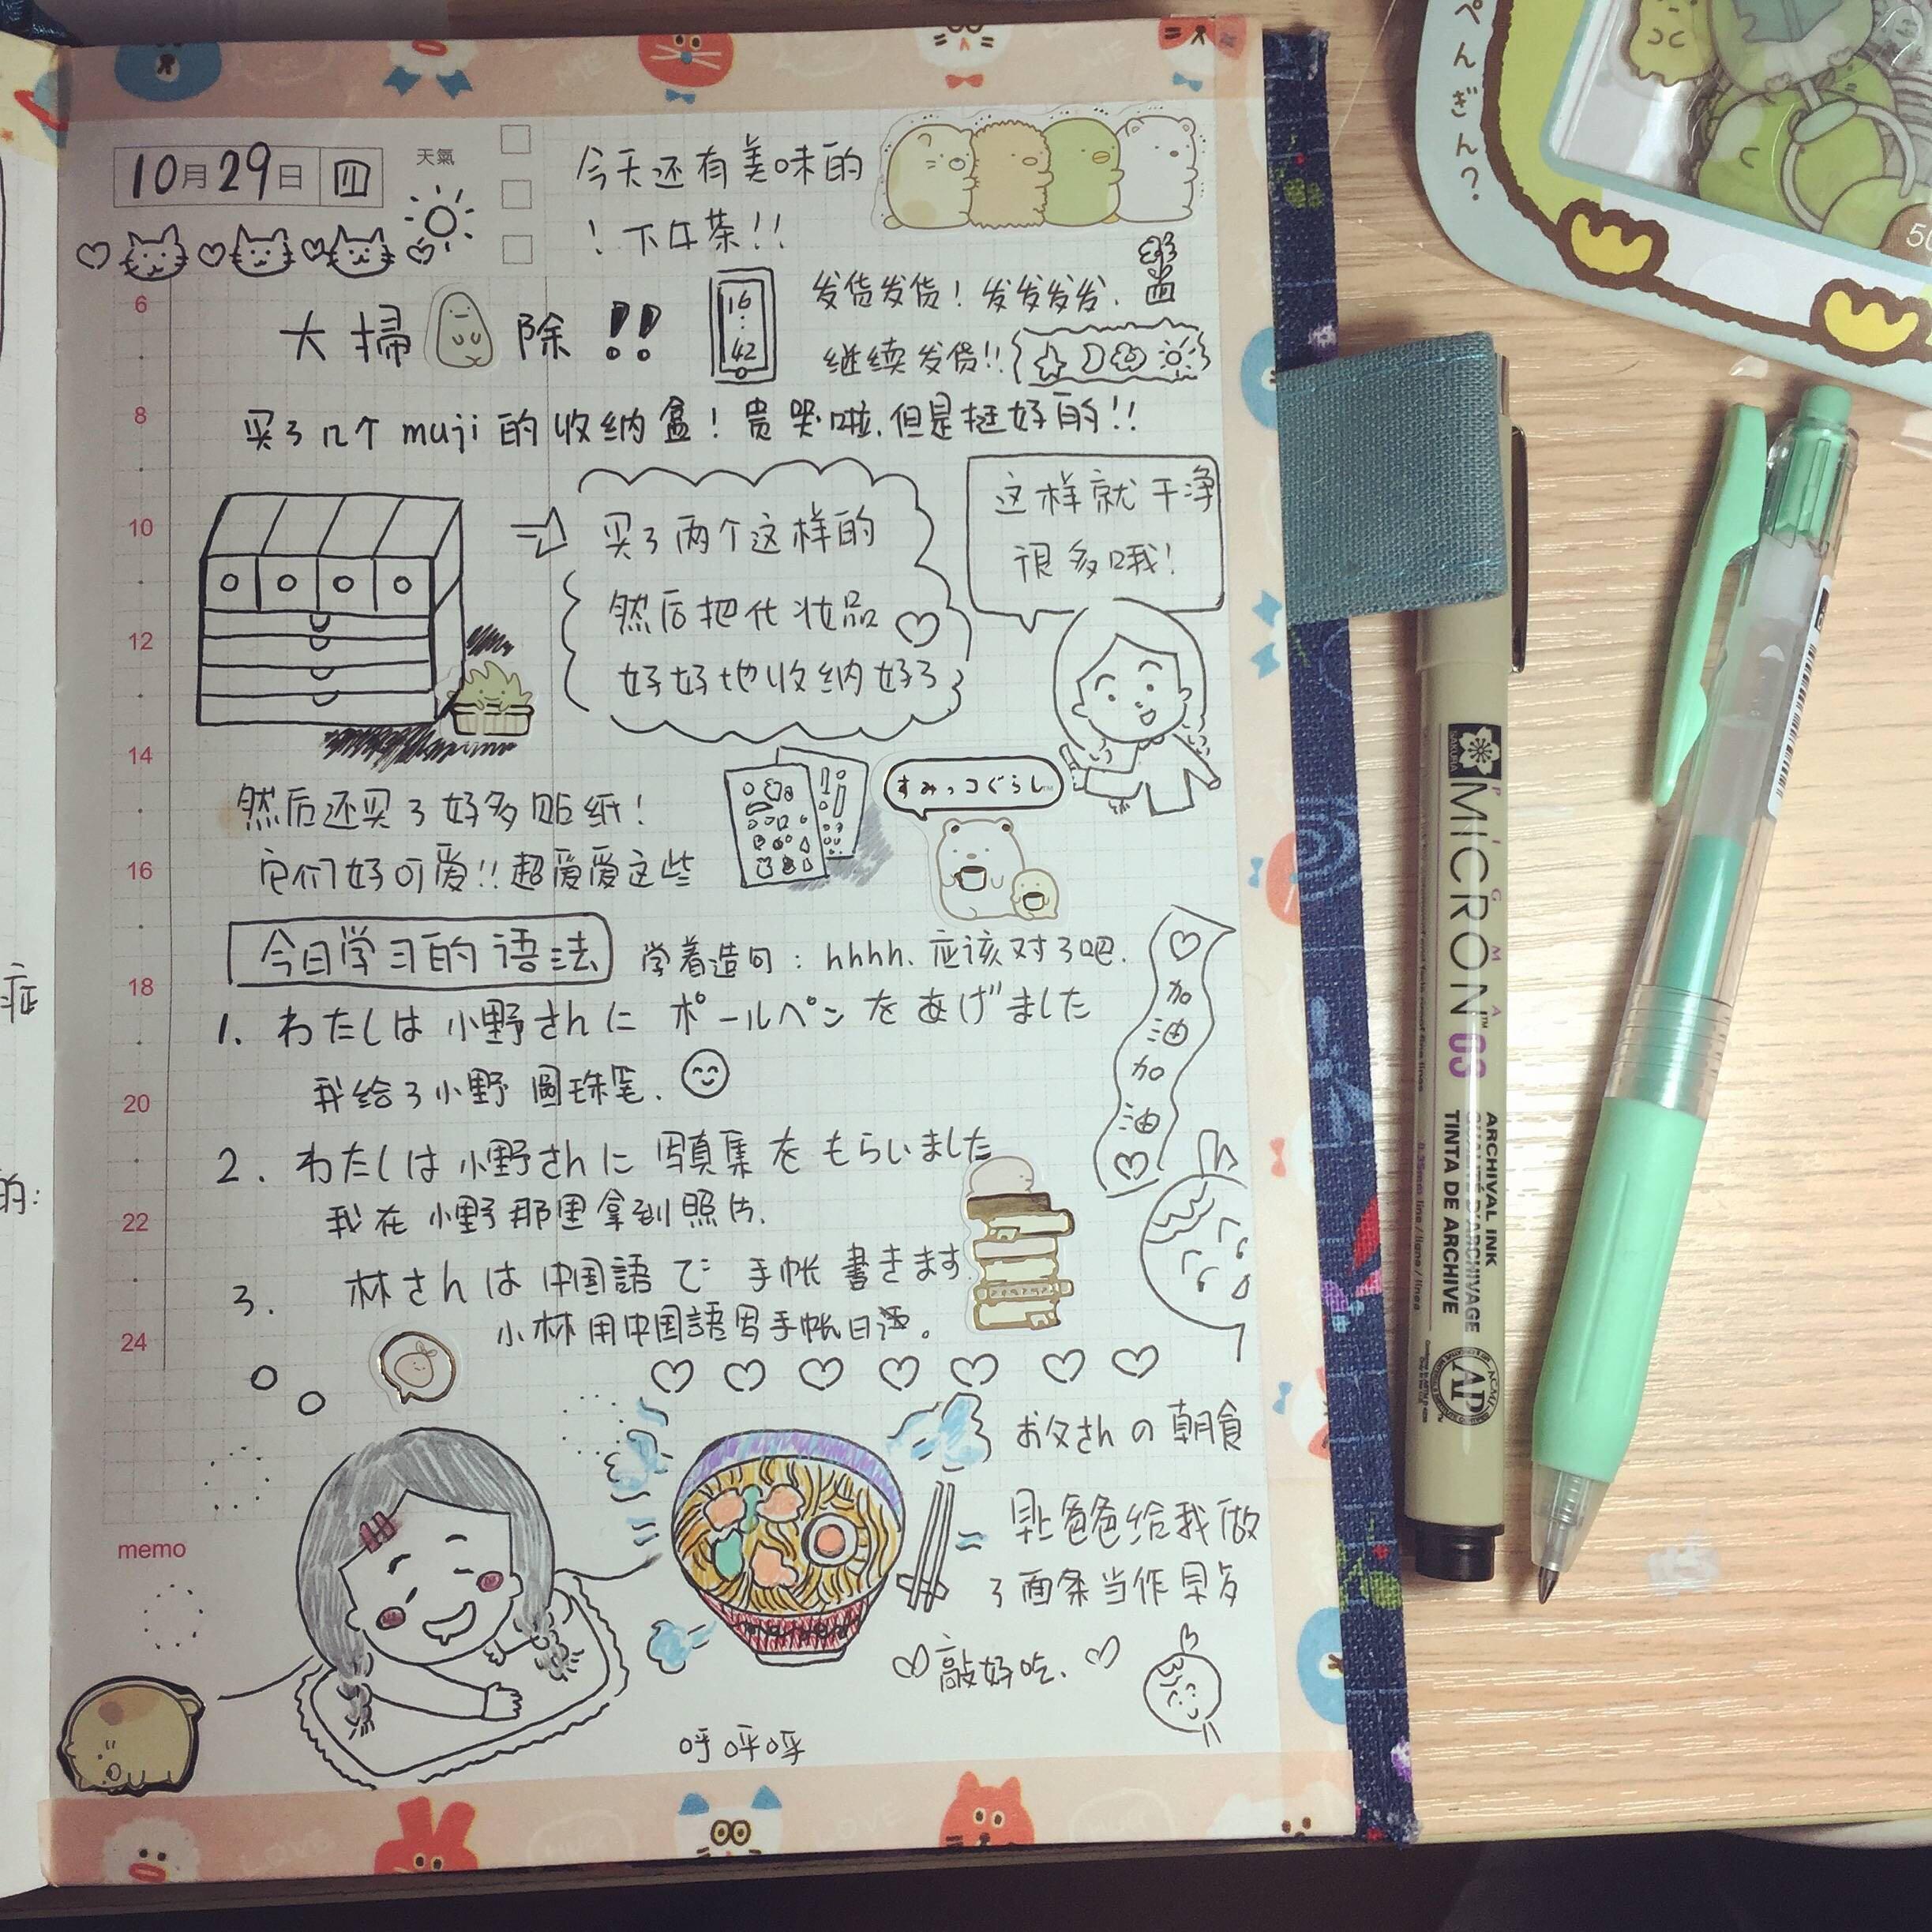 10月29日 四
天氣
今天还有美味的
！下午茶！！
大掃除！！
16:42
发货发货！发发发发.
继续发货!!
买了几个muji的收纳盒！贵哭啦.但是挺好的！！
买了两个这样的
然后把化妆品
好好地收纳好了
这样就干净
很多哦！
然后还买了好多贴纸！
它们好可爱！！超爱爱这些
すみっコぐらし
今日学习的语法
学着造句：hhhh.应该对了吧.
1. わたしは小野さんに ボールペンをあげました
我给了小野圆珠笔.
2. わたしは小野さんに 写真集をもらいました
我在小野那里拿到照片.
3. 林さんは中国語で 手帐書きます.
小林用中国語写手帐日
加油加油
お父さんの朝食
爸爸给我做
了面条当作早
敲好吃.
呼呼呼
6
8
10
12
14
16
18
20
22
24
memo
症
的:
ぺんぎん?
50
SAKURA
PIGMA
MICRON™ 03
ARCHIVAL INK
TINTA DE ARCHIVE
AP